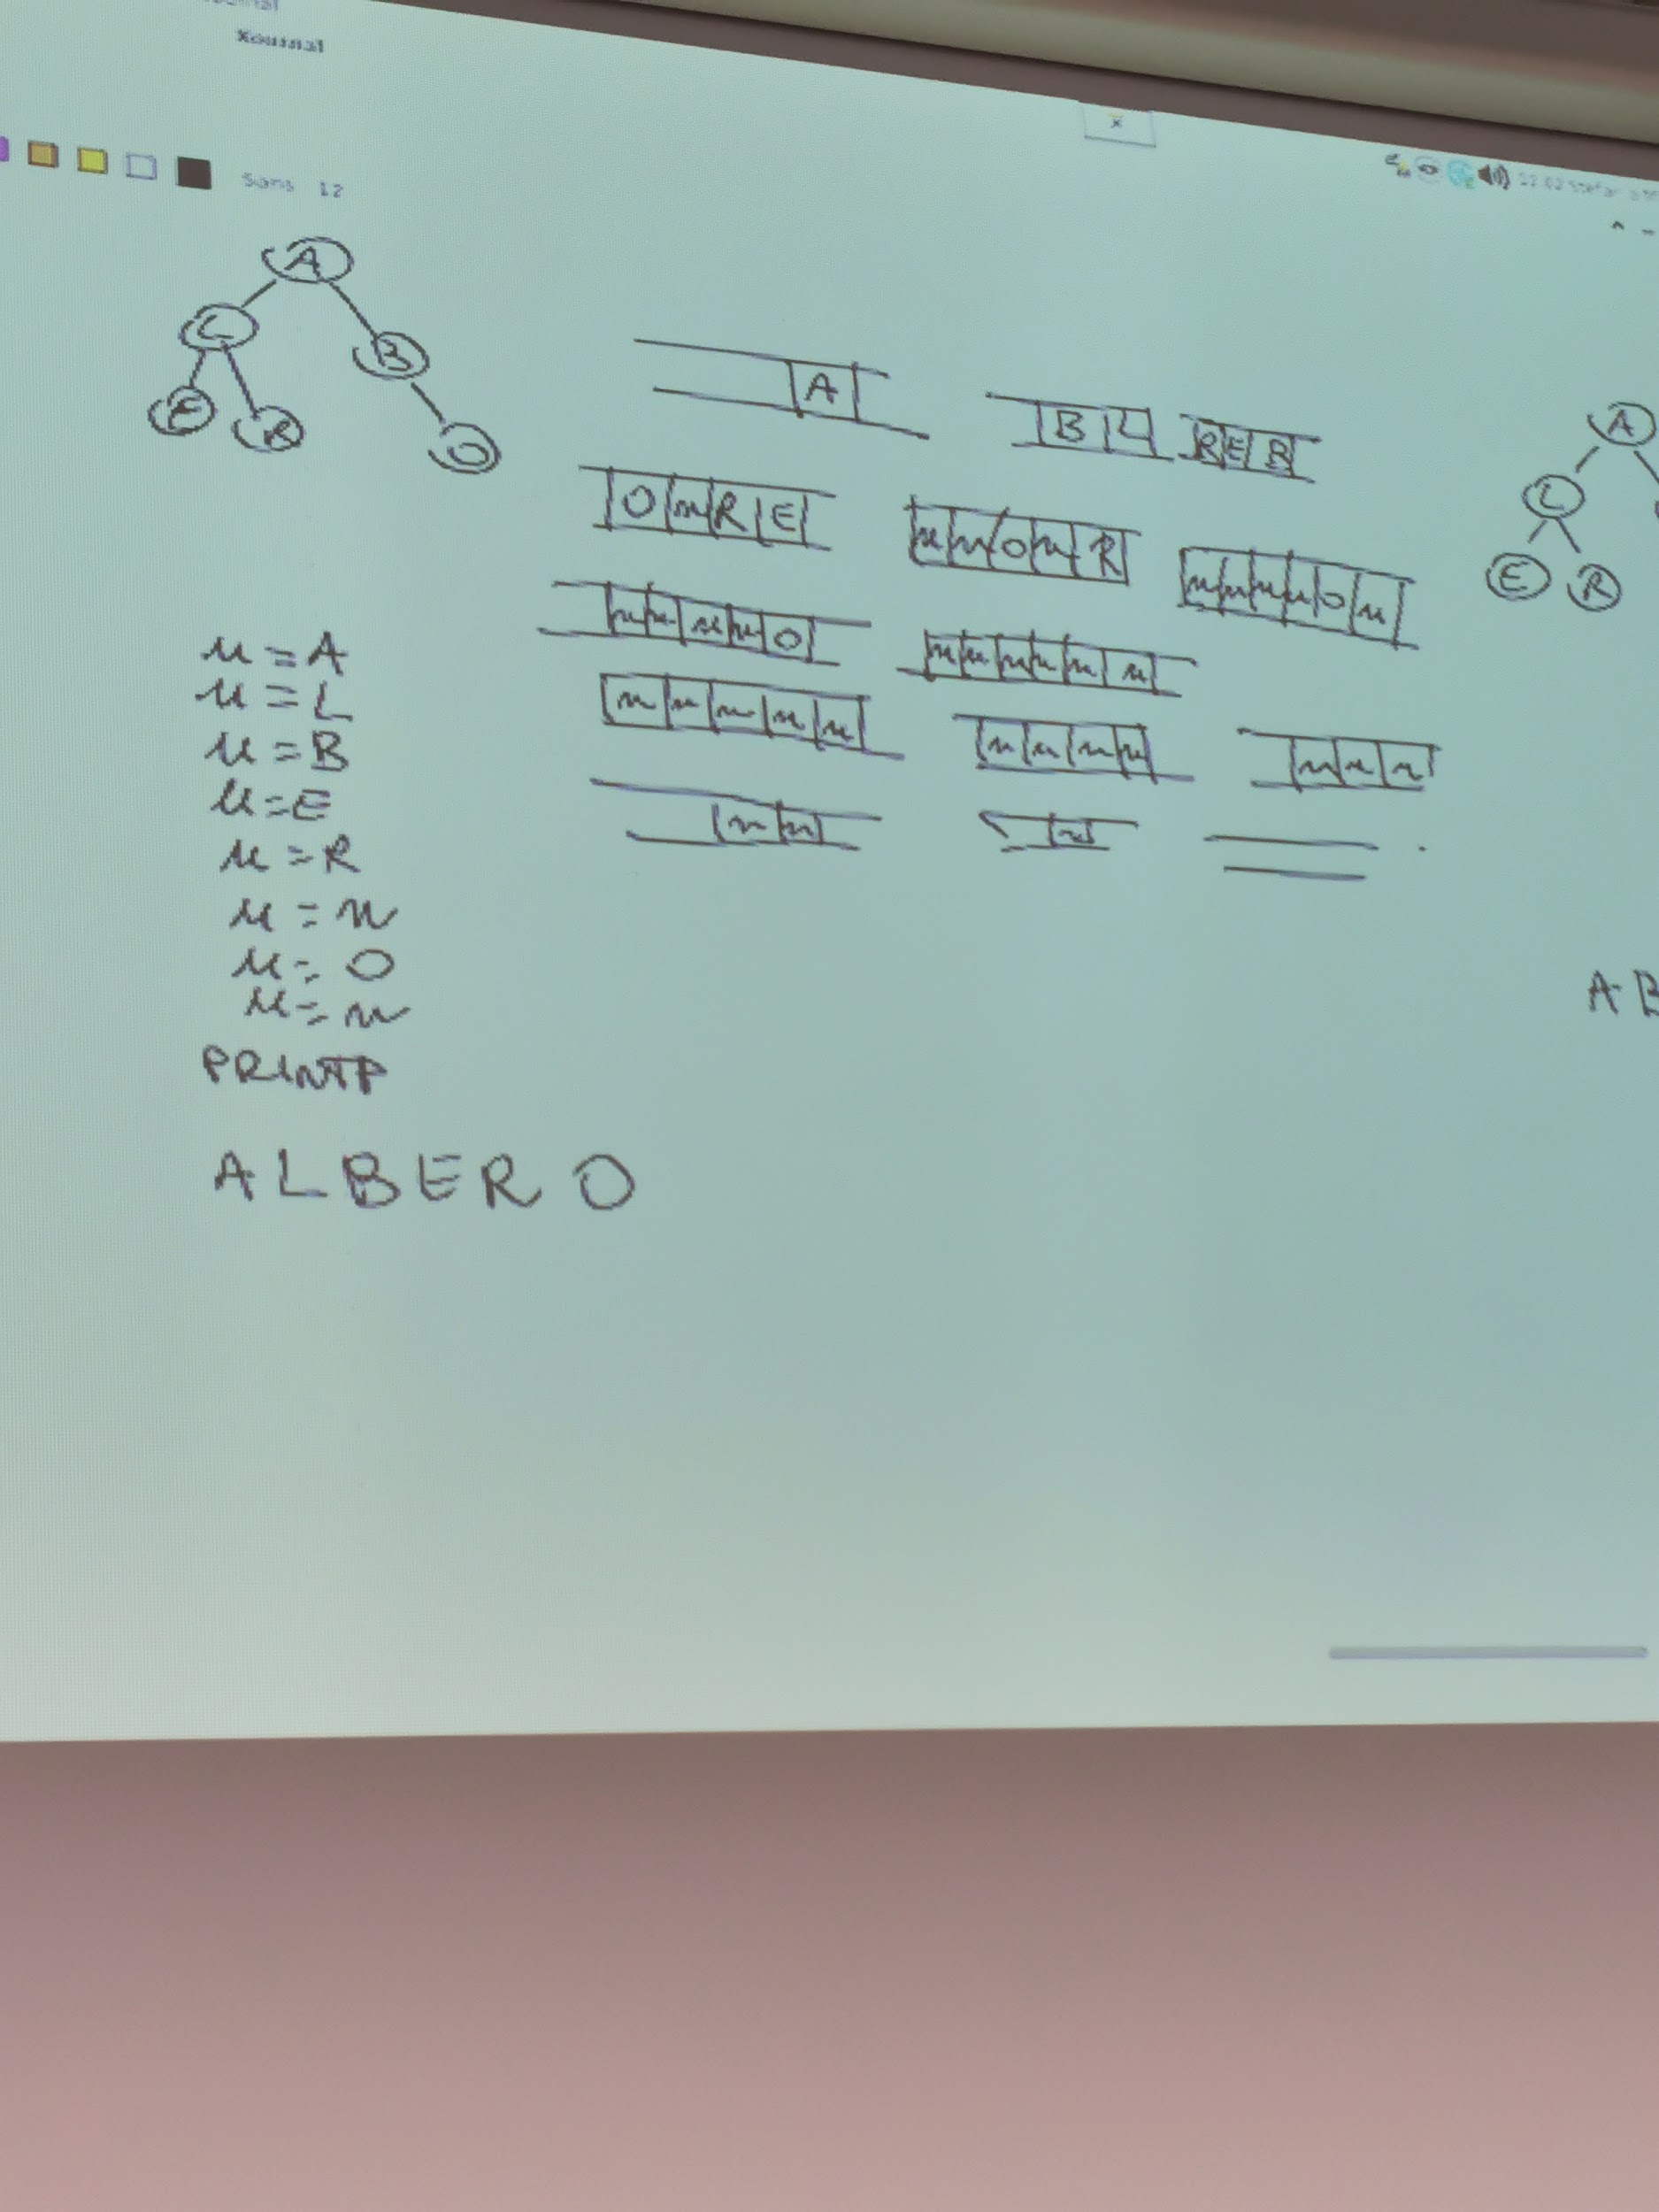 Xournal
Sans 12
A
L
B
E
R
O
A
B L
R E B
O n R E
n n O n R
n n n n O n
n n n n O
n n n n n n
n n n n n
n n n n
n n n
n n
n
A
L
E R
u = A
u = L
u = B
u = E
u = R
u = n
u = O
u = n
PRINTP
A L B E R O
A B